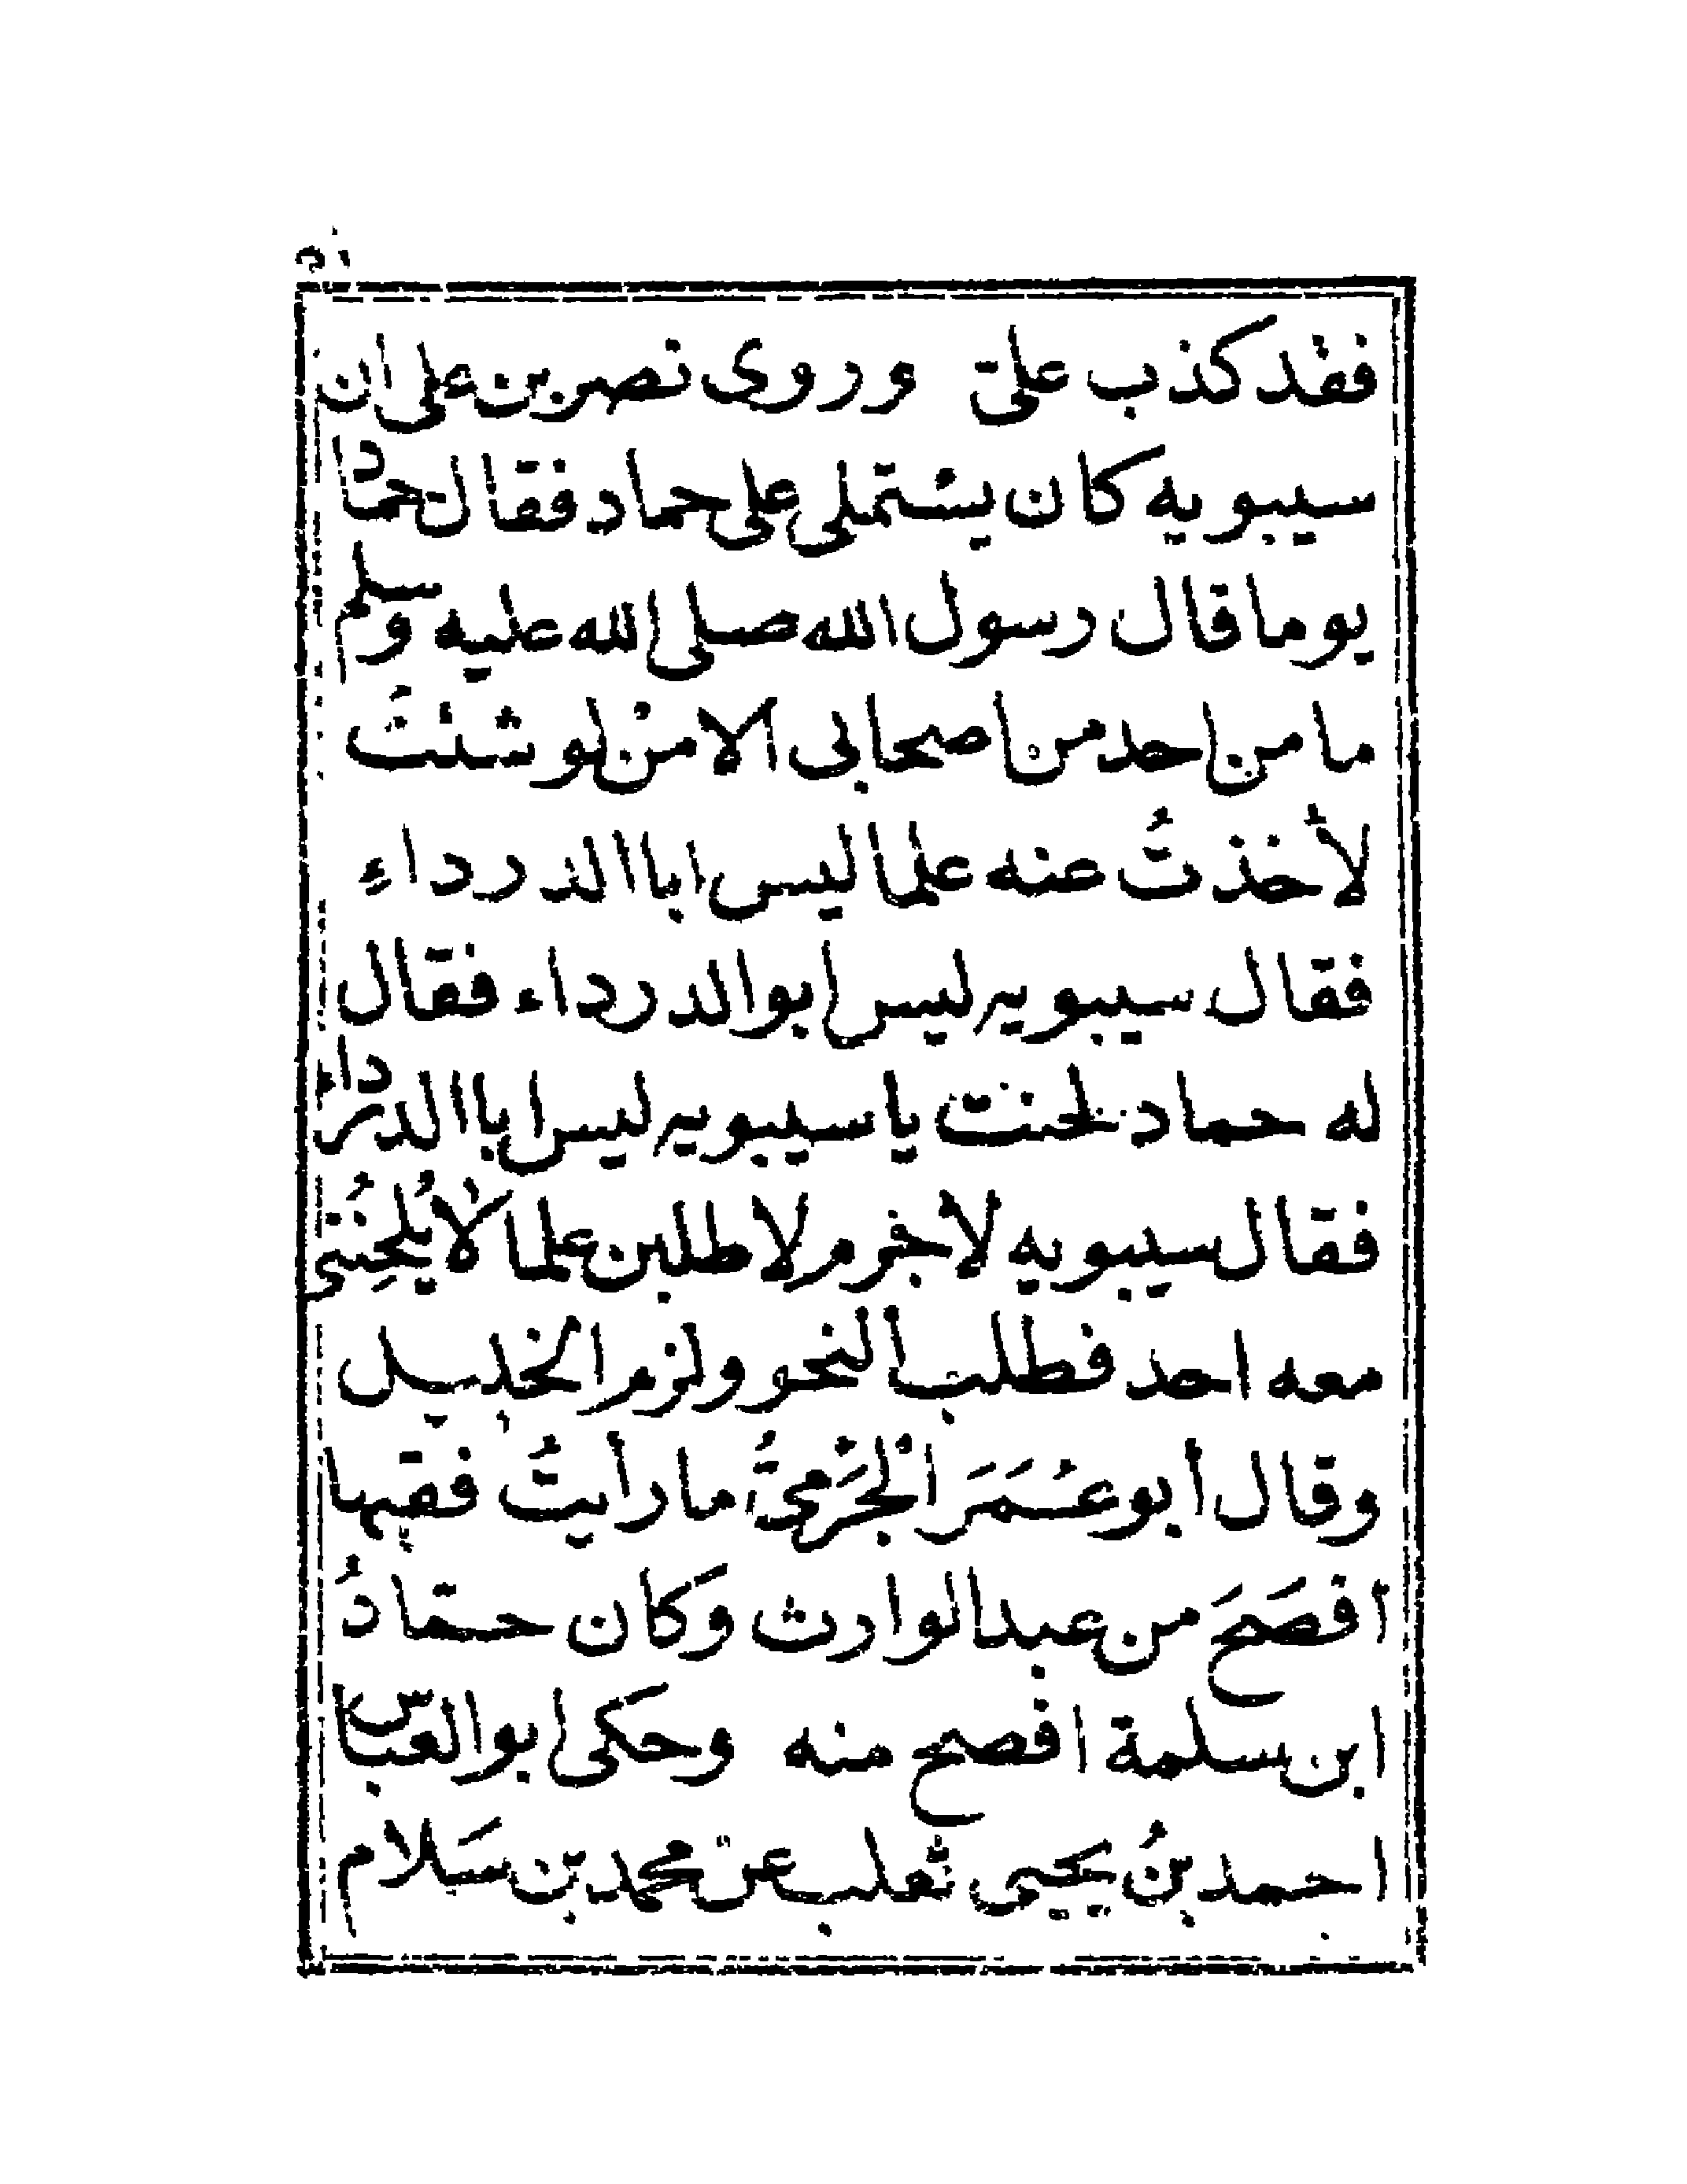 فقد كذب علىّ وروى نصر بن على ان
سيبويه كان يستملى على حماد فقال حماد
يوما قال رسول الله صلى الله عليه وسلم
ما من احد من اصحابى الا منْ لو شئتُ
لأخذتُ عنه علما ليس ابا الدرداءِ
فقال سيبويه ليس ابو الدرداء فقال
له حماد لحنت يا سيبويه ليس ابا الدرداء
فقال سيبويه لا جرم لاطلبن علما لا يُلحِنُنى
معه احد فطلب النحو ولزم الخليل
وقال أبو عُمَرَ الْجَرْمىُّ ما رأيتُ فقيها
افصَحَ من عبد الوارث وَكان حمّادُ
ابن سلمة افصح منه وحَكى ابو العباس
احمد بنُ يحيى ثعلب عنْ محمد بن سَلام